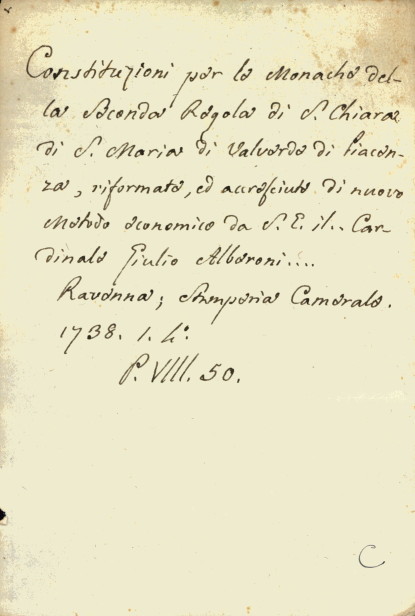 Constituzioni per le Monache del-
la Seconda Regola di S. Chiara
di S. Maria di Valverde di Piacen-
za, riformate, ed accresciute di nuovo
Metodo economico da S. E. il.. Car-
dinale Giulio Alberoni....
Ravenna; Stamperia Camerale.
1738. 1. 4.º
P. VIII. 50.
C